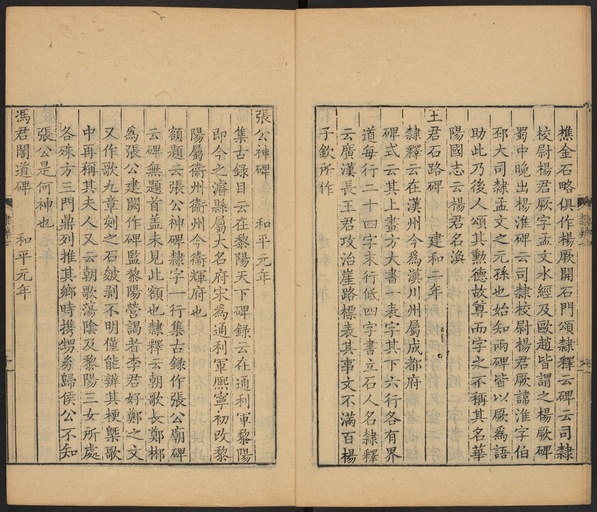 樵金石略俱作楊厥開石門頌隸釋云碑云司隸
校尉楊君厥字孟文水經及歐趙皆謂之楊厥碑
蜀中晚出楊淮碑云司隸校尉楊君厥諱淮字伯
邳大司隸孟文之元孫也始知兩碑皆以厥為語
助此乃後人頌其勲德故尊而字之不稱其名華
陽國志云楊君名渙
王君石路碑 建和二年
隸釋云在漢州今為漢川州屬成都府
碑式云其上畫方大書一表字其下六行各有界
道每行二十四字末行低四字書立石人名隸釋
云廣漢長王君攻治崖路標表其事文不滿百楊
子欽所作
張公神碑 和平元年
集古録目云在黎陽天下碑録云在通利軍黎陽
即今之濬縣屬大名府宋為通利軍熙寧初改黎
陽屬衛州衛州今衛輝府也
額題云張公神碑隸字一行集古録作張公廟碑
云碑無題首蓋未見此額也隸釋云朝歌長鄭郴
為張公建闕作碑監黎陽營謁者李君好鄭之文
又作歌九章刻之石皴剥不明僅能辨其梗槩歌
中再稱其夫人又云朝歌蕩陰及黎陽三女所處
各殊方三門鼎列推其鄉時攜甥舅歸侯公不知
張公是何神也
馮君閣道碑 和平元年